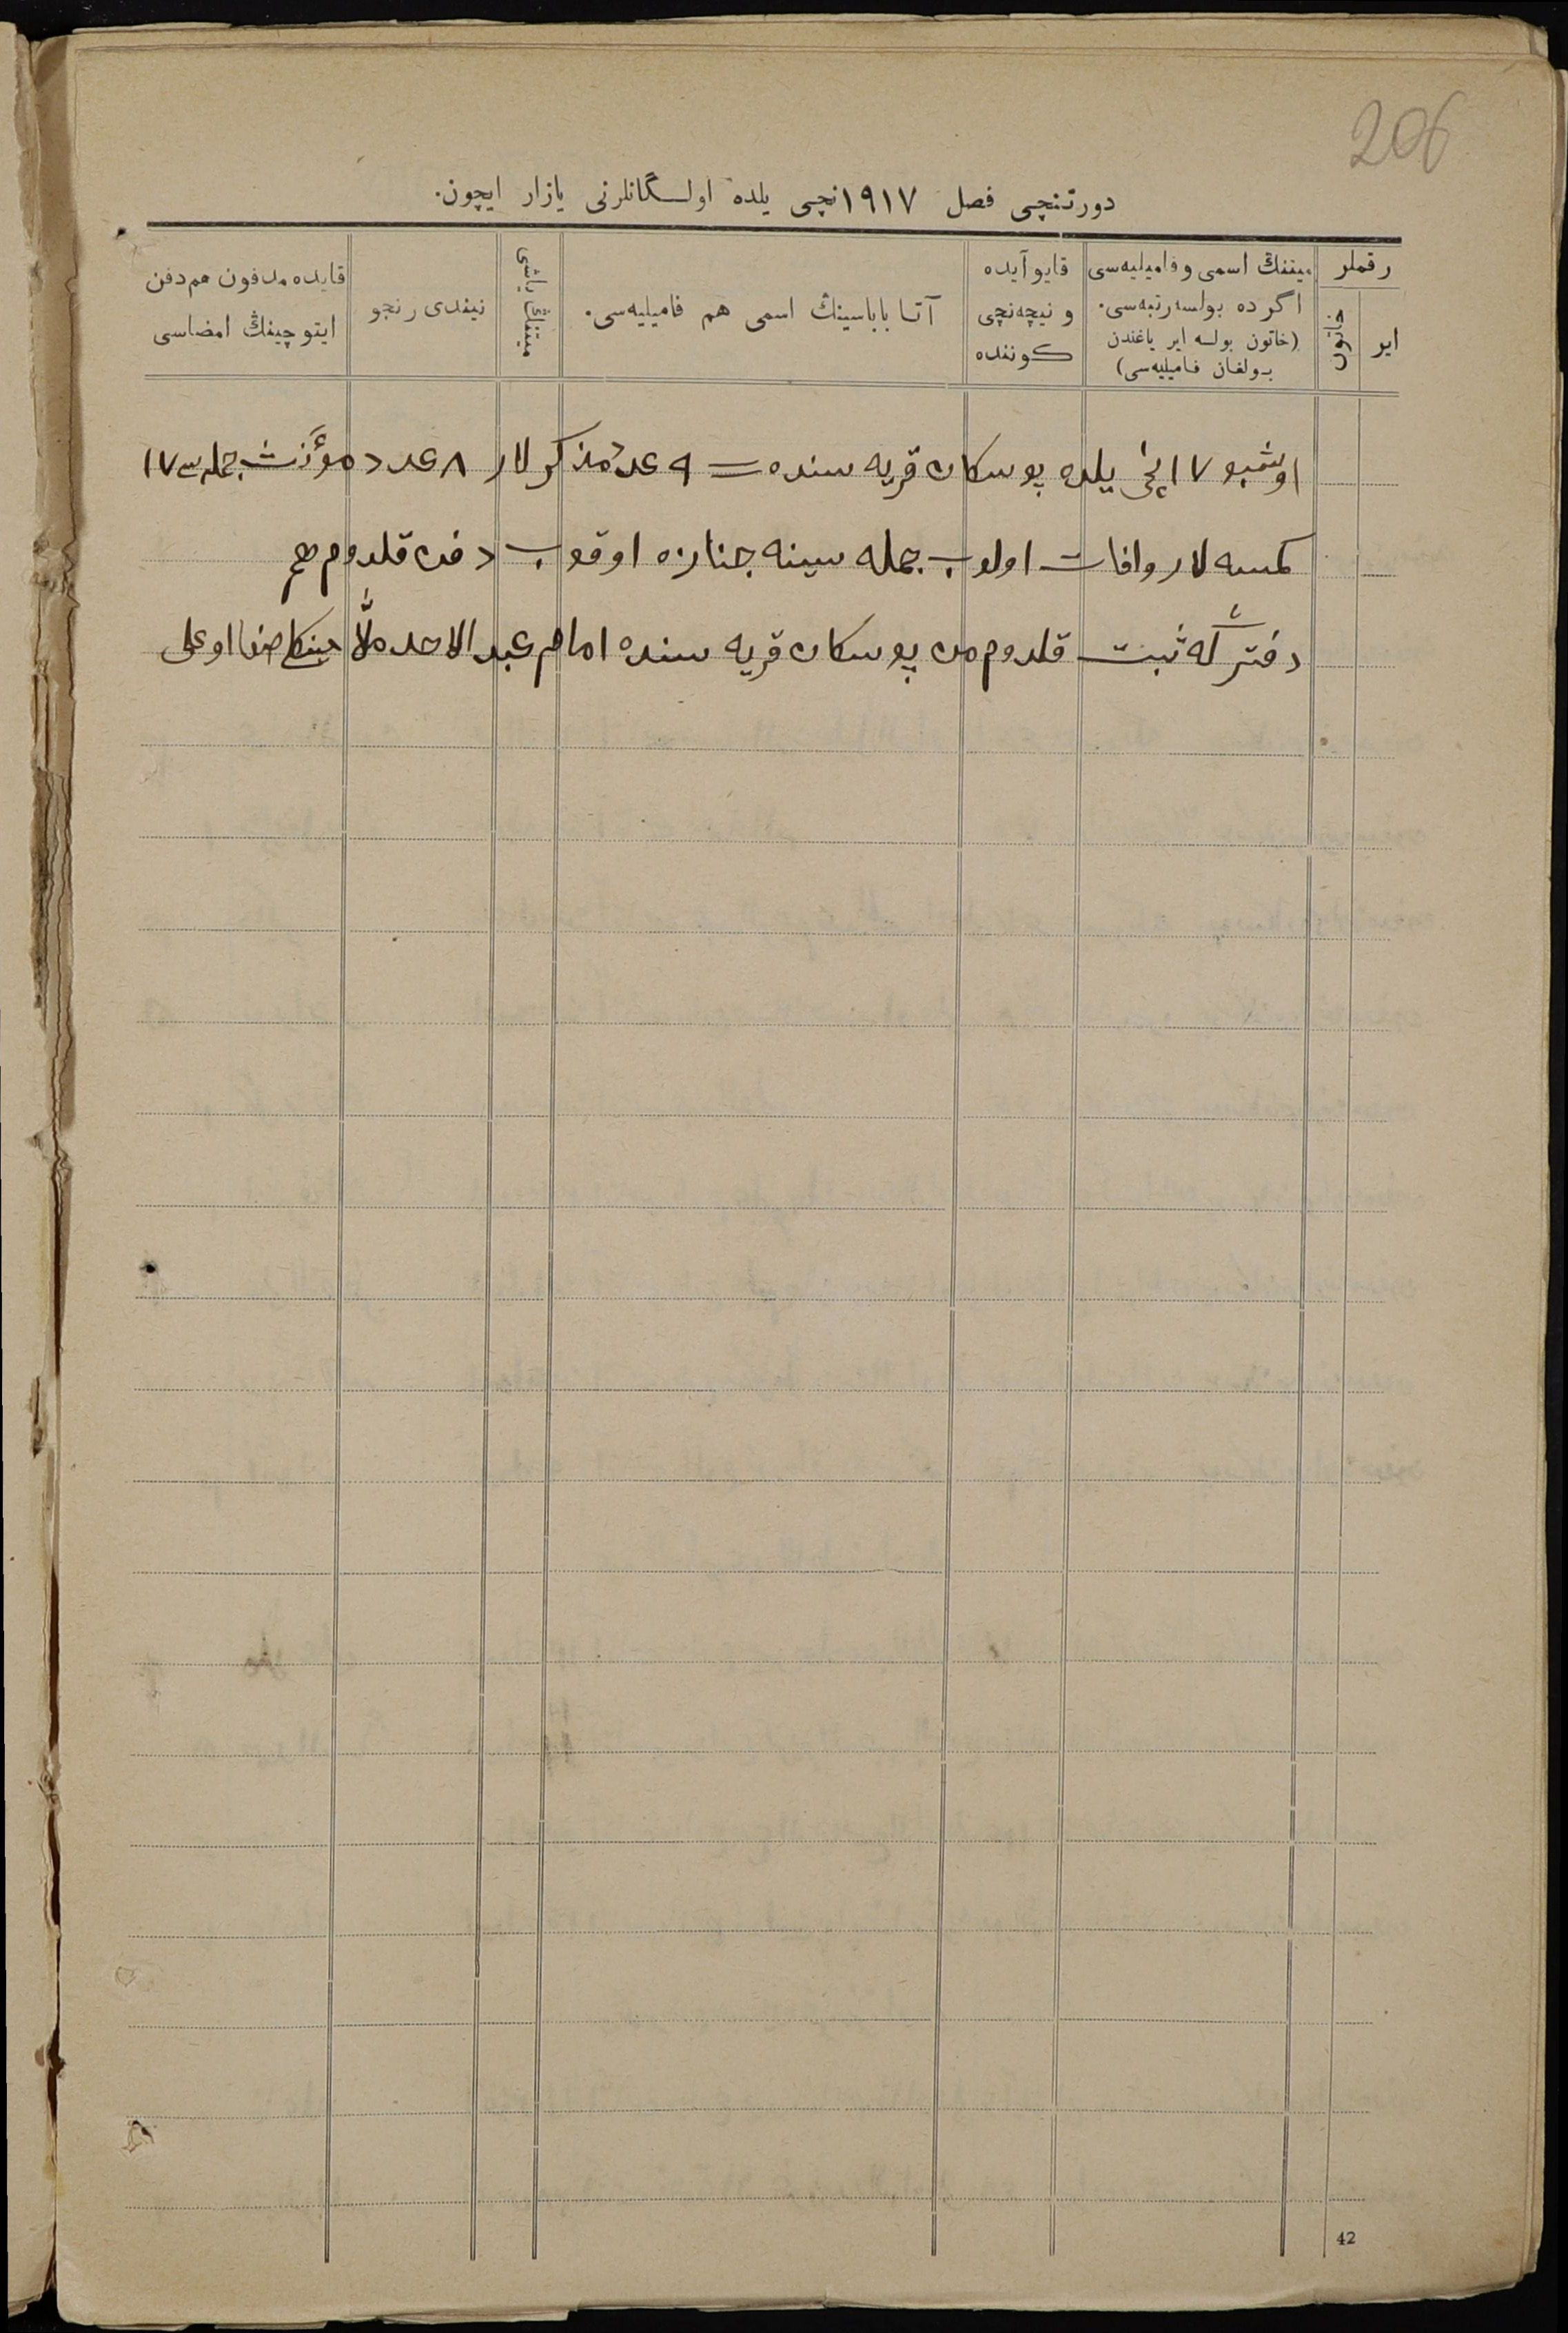 206
دورتنچی فصل ۱۹۱۷نچی یلده اولـگانلرنی یازار ایچون.
رقملر
ایر
خاتون
میتنڭ اسمی و فامیلیه‌سی
اگر ده بولسه رتبه‌سی.
(خاتون بولسه ایر یاغندن
بـولغان فامیلیه‌سی)
قایو آیده
و نیچه‌نچی
کوننده
آتـا باباسینڭ اسمی هم فامیلیه‌سی.
میتنڭ یاشی
نیندی رنجو
قایده مدفون هم دفن
ایتوچینڭ امضاسی
اوشبو ۱۷ نچی یلده بوسکان قریه سنده ۹ عدد مذکر لار ۸ عدد مؤنث جمله سی ۱۷
کمسه لار وافات اولوب جمله سینه جنازه اوقوب دفن قلدوم هم
دفتر که ثبت قلدوم من بوسکان قریه سنده امام عبد الاحد ملّا اوغلی
42